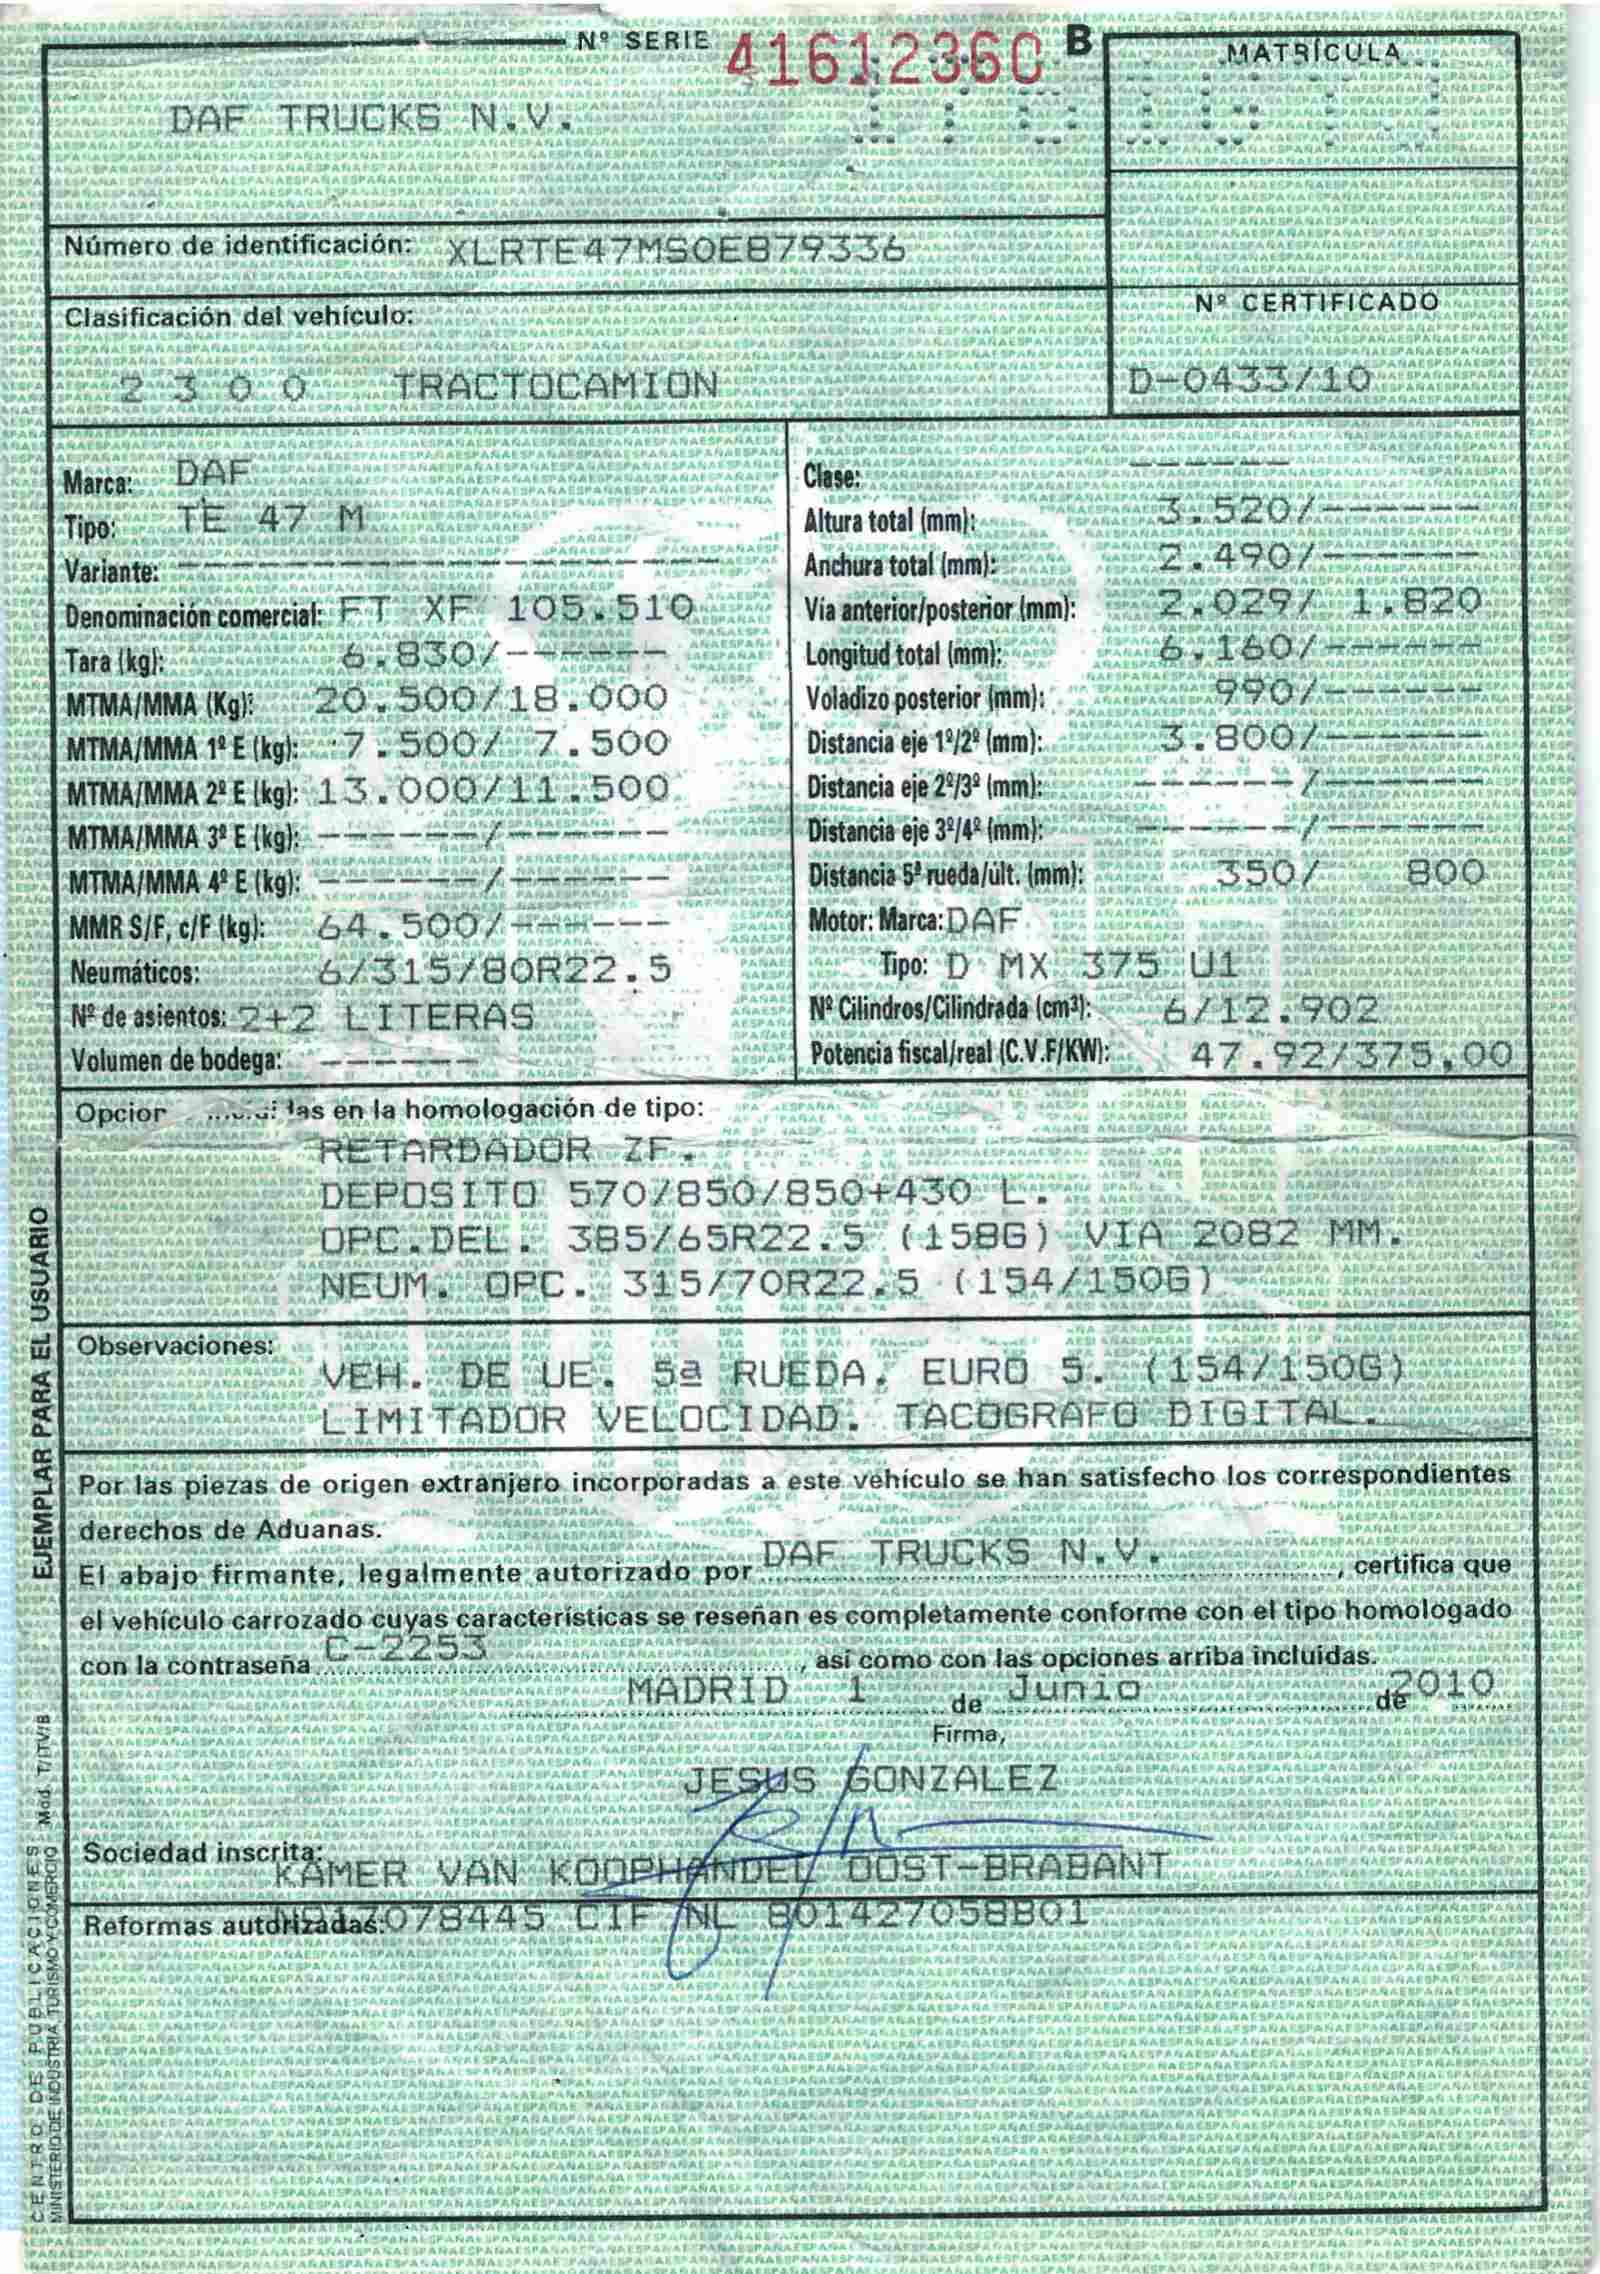 Nº SERIE 41612360 B
MATRÍCULA
DAF TRUCKS N.V.
Número de identificación: XLRTE47MS0E879336
Nº CERTIFICADO
D-0433/10
Clasificación del vehículo:
2 3 0 0 TRACTOCAMION
Marca: DAF
Tipo: TE 47 M
Variante: ------
Denominación comercial: FT XF 105.510
Tara (kg): 6.830/------
MTMA/MMA (Kg): 20.500/18.000
MTMA/MMA 1º E (kg): 7.500/ 7.500
MTMA/MMA 2º E (kg): 13.000/11.500
MTMA/MMA 3º E (kg): ------/------
MTMA/MMA 4º E (kg): ------/------
MMR S/F, c/F (kg): 64.500/------
Neumáticos: 6/315/80R22.5
Nº de asientos: 2+2 LITERAS
Volumen de bodega: ------
Clase: ------
Altura total (mm): 3.520/------
Anchura total (mm): 2.490/------
Vía anterior/posterior (mm): 2.029/ 1.820
Longitud total (mm): 6.160/------
Voladizo posterior (mm): 990/------
Distancia eje 1º/2º (mm): 3.800/------
Distancia eje 2º/3º (mm): ------/------
Distancia eje 3º/4º (mm): ------/------
Distancia 5ª rueda/últ. (mm): 350/ 800
Motor: Marca: DAF
Tipo: D MX 375 U1
Nº Cilindros/Cilindrada (cm³): 6/12.902
Potencia fiscal/real (C.V.F/KW): 47.92/375,00
en la homologación de tipo:
RETARDADOR ZF.
DEPOSITO 570/850/850+430 L.
OPC.DEL. 385/65R22.5 (158G) VIA 2082 MM.
NEUM. OPC. 315/70R22.5 (154/150G)
Observaciones:
VEH. DE UE. 5ª RUEDA. EURO 5. (154/150G)
LIMITADOR VELOCIDAD. TACOGRAFO DIGITAL.
Por las piezas de origen extranjero incorporadas a este vehículo se han satisfecho los correspondientes
derechos de Aduanas.
El abajo firmante, legalmente autorizado por DAF TRUCKS N.V., certifica que
el vehículo carrozado cuyas características se reseñan es completamente conforme con el tipo homologado
con la contraseña C-2253, así como con las opciones arriba incluidas.
MADRID 1 de Junio de 2010
Firma,
JESUS GONZALEZ
Sociedad inscrita:
KAMER VAN KOOPHANDEL OOST-BRABANT
Reformas autorizadas: 17078445 CIF NL 801427058B01
EJEMPLAR PARA EL USUARIO
CENTRO DE PUBLICACIONES Mod. T/ITV/B
MINISTERIO DE INDUSTRIA, TURISMO Y COMERCIO